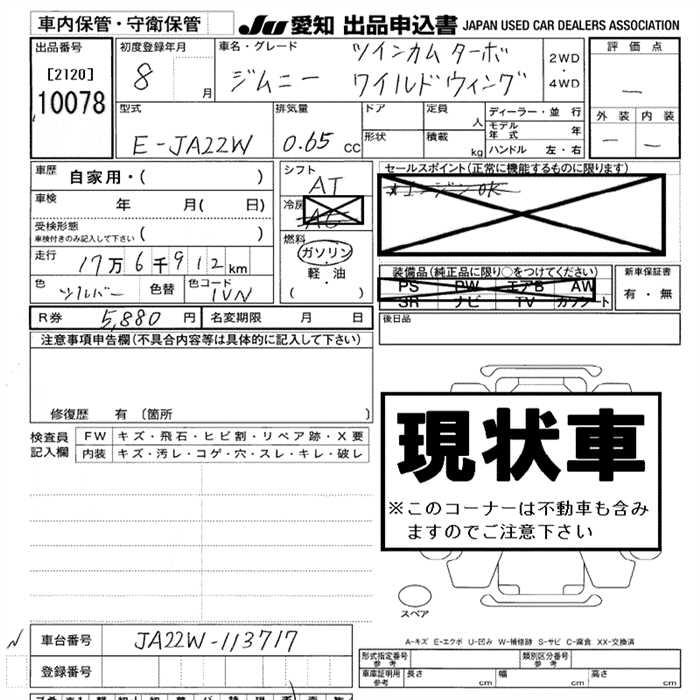 車内保管・守衛保管 JU 愛知 出品申込書 JAPAN USED CAR DEALERS ASSOCIATION
出品番号 初度登録年月 車名・グレード ツインカムターボ 2WD・4WD 評価点
[2120] 8 月 ジムニー ワイルドウィング —
10078
型式 排気量 ドア 定員 人 ディーラー・並行 外装 内装
E-JA22W 0.65 CC 形状 積載 kg モデル年式 年 — —
ハンドル 左・右
車歴 自家用・( ) シフト AT セールスポイント(正常に機能するものに限ります)
車検 年 月( 日) 冷房 AC ★エンジンOK
受検形態
車検付きのみ記入して下さい ( ) 燃料
走行 17万6千912km ガソリン・軽・油 ( ) 装備品(純正品に限り○をつけてください) 新車保証書
色 シルバー 色替 色コード 1VN PS PW エアB AW 有・無
SR ナビ TV カワシート
R券 5,880 円 名変期限 月 日 後日品
注意事項申告欄(不具合内容等は具体的に記入して下さい)
修復歴 有 〔箇所 〕
検査員記入欄 FW キズ・飛石・ヒビ割・リペア跡・X要
内装 キズ・汚レ・コゲ・穴・スレ・キレ・破レ
現状車
※このコーナーは不動車も含み
ますのでご注意下さい
スペア
A-キズ E-エクボ U-凹み W-補修跡 S-サビ C-腐食 XX-交換済
車台番号 JA22W-113717
形式指定番号 参考 類別区分番号 参考
登録番号 車庫証明用 参考 長さ cm 幅 cm 高さ cm